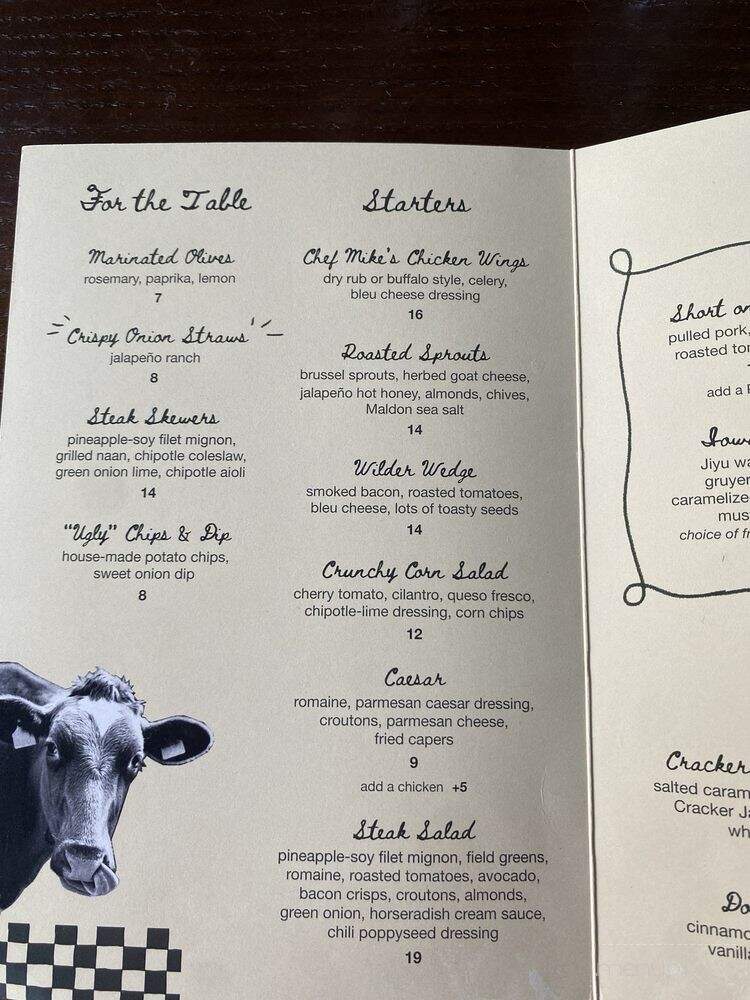 For the Table
Marinated Olives
rosemary, paprika, lemon
7
Crispy Onion Straws
jalapeño ranch
8
Steak Skewers
pineapple-soy filet mignon,
grilled naan, chipotle coleslaw,
green onion lime, chipotle aioli
14
"Ugly" Chips & Dip
house-made potato chips,
sweet onion dip
8
Starters
Chef Mike's Chicken Wings
dry rub or buffalo style, celery,
bleu cheese dressing
16
Roasted Sprouts
brussel sprouts, herbed goat cheese,
jalapeño hot honey, almonds, chives,
Maldon sea salt
14
Wilder Wedge
smoked bacon, roasted tomatoes,
bleu cheese, lots of toasty seeds
14
Crunchy Corn Salad
cherry tomato, cilantro, queso fresco,
chipotle-lime dressing, corn chips
12
Caesar
romaine, parmesan caesar dressing,
croutons, parmesan cheese,
fried capers
9
add a chicken +5
Steak Salad
pineapple-soy filet mignon, field greens,
romaine, roasted tomatoes, avocado,
bacon crisps, croutons, almonds,
green onion, horseradish cream sauce,
chili poppyseed dressing
19
Short
pulled pork,
roasted
add a
Jiyu
choice of
Cracker
salted
Cracker